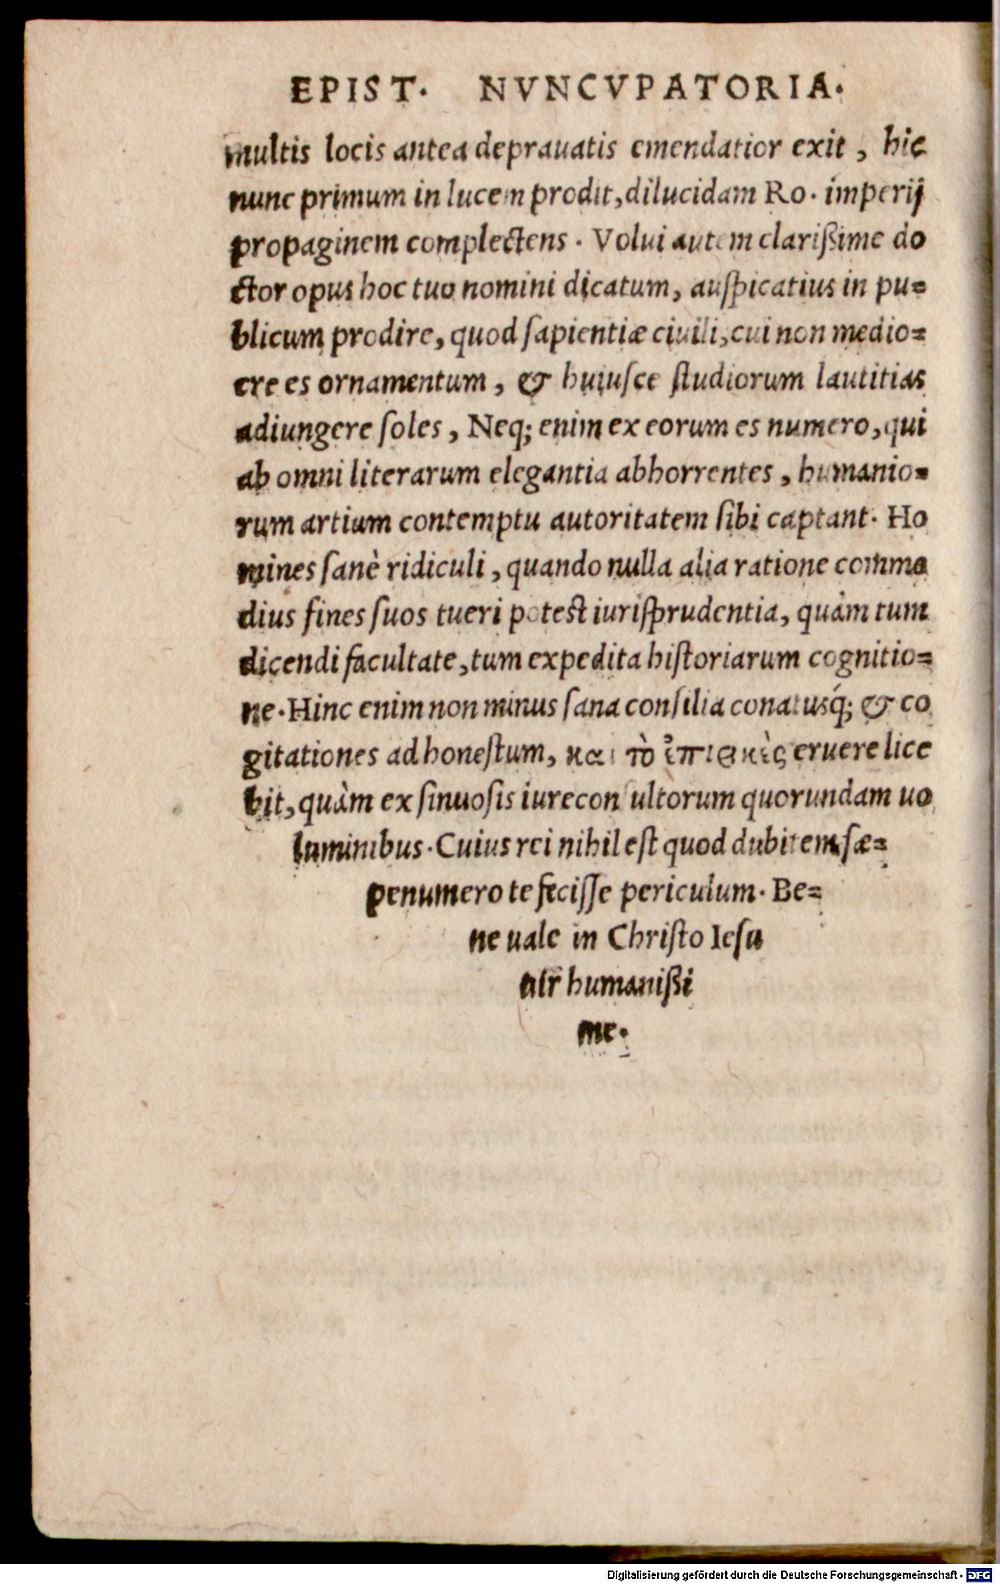 EPIST. NVNCVPATORIA.
multis locis antea deprauatis emendatior exit, hic
nunc primum in lucem prodit, dilucidam Ro. imperij
propaginem complectens. Volui autem clarißime do
ctor opus hoc tuo nomini dicatum, auſpicatius in pu=
blicum prodire, quod ſapientiæ ciuili, cui non medio=
cre es ornamentum, & huiuſce ſtudiorum lautitias
adiungere ſoles, Neq; enim ex eorum es numero, qui
ab omni literarum elegantia abhorrentes, humanio=
rum artium contemptu autoritatem ſibi captant. Ho
mines ſanè ridiculi, quando nulla alia ratione commo
dius fines ſuos tueri poteſt iuriſprudentia, quàm tum
dicendi facultate, tum expedita hiſtoriarum cognitio=
ne. Hinc enim non minus ſana conſilia conatusq́; & co
gitationes ad honeſtum, καὶ τὸ ἐπιεικὲς eruere lice
bit, quàm ex ſinuoſis iureconſultorum quorundam uo
luminibus. Cuius rei nihil eſt quod dubitem ſæ=
penumero te feciſſe periculum. Be=
ne uale in Chriſto Ieſu
uir humanißi
me.
Digitalisierung gefördert durch die Deutsche Forschungsgemeinschaft - DFG